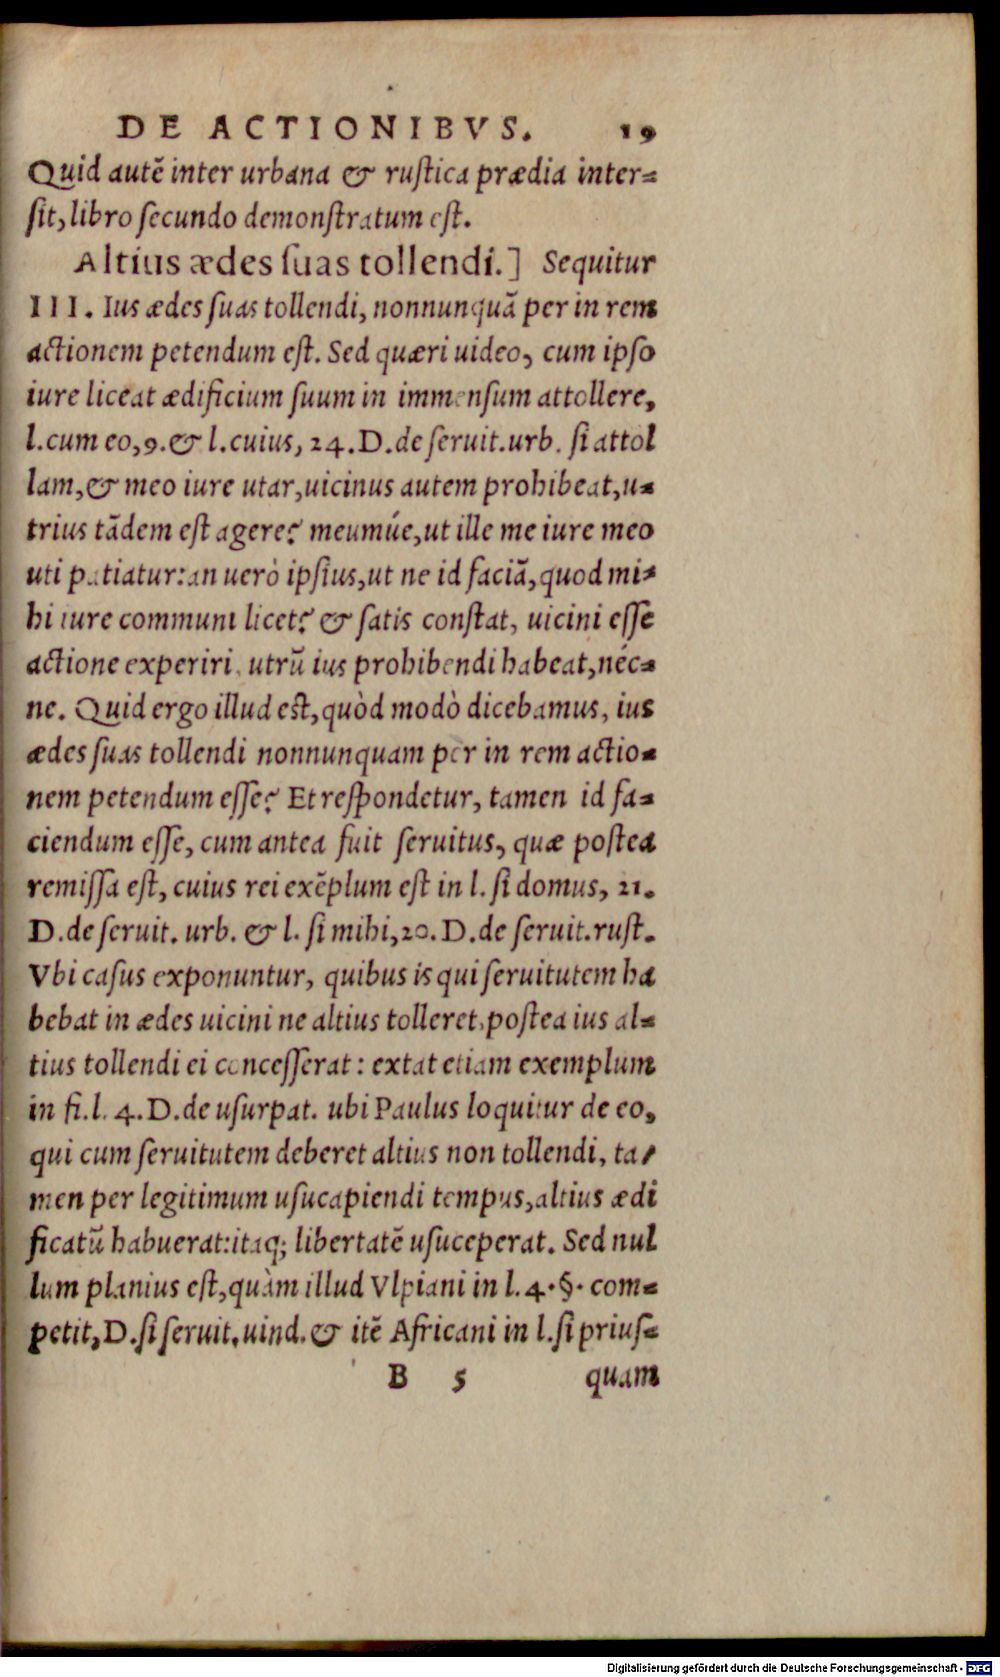 DE ACTIONIBVS. 19
Quid autē inter urbana & rustica prædia inter=
sit, libro secundo demonstratum est.
Altius ædes suas tollendi.] Sequitur
III. Ius ædes suas tollendi, nonnunquā per in rem
actionem petendum est. Sed quæri uideo, cum ipso
iure liceat ædificium suum in immensum attollere,
l.cum eo,9.& l.cuius, 24.D.de seruit.urb. si attol
lam,& meo iure utar,uicinus autem prohibeat,u=
trius tādem est agere? meumúe,ut ille me iure meo
uti patiatur:an uerò ipsius,ut ne id faciā,quod mi=
hi iure communi licet? & satis constat, uicini esse
actione experiri, utrū ius prohibendi habeat,néc=
ne. Quid ergo illud est,quòd modò dicebamus, ius
ædes suas tollendi nonnunquam per in rem actio=
nem petendum esse? Et respondetur, tamen id fa=
ciendum esse, cum antea fuit seruitus, quæ postea
remissa est, cuius rei exēplum est in l. si domus, 21.
D.de seruit. urb. & l. si mihi,20.D.de seruit.rust.
Vbi casus exponuntur, quibus is qui seruitutem ha
bebat in ædes uicini ne altius tolleret,postea ius al=
tius tollendi ei concesserat: extat etiam exemplum
in fi.l. 4.D.de usurpat. ubi Paulus loquitur de eo,
qui cum seruitutem deberet altius non tollendi, ta=
men per legitimum usucapiendi tempus,altius ædi
ficatū habuerat:itaq; libertatē usuceperat. Sed nul
lum planius est,quàm illud Vlpiani in l.4.§. com=
petit,D.si seruit.uind.& itē Africani in l.si prius=
B 5 quam
Digitalisierung gefördert durch die Deutsche Forschungsgemeinschaft - DFG